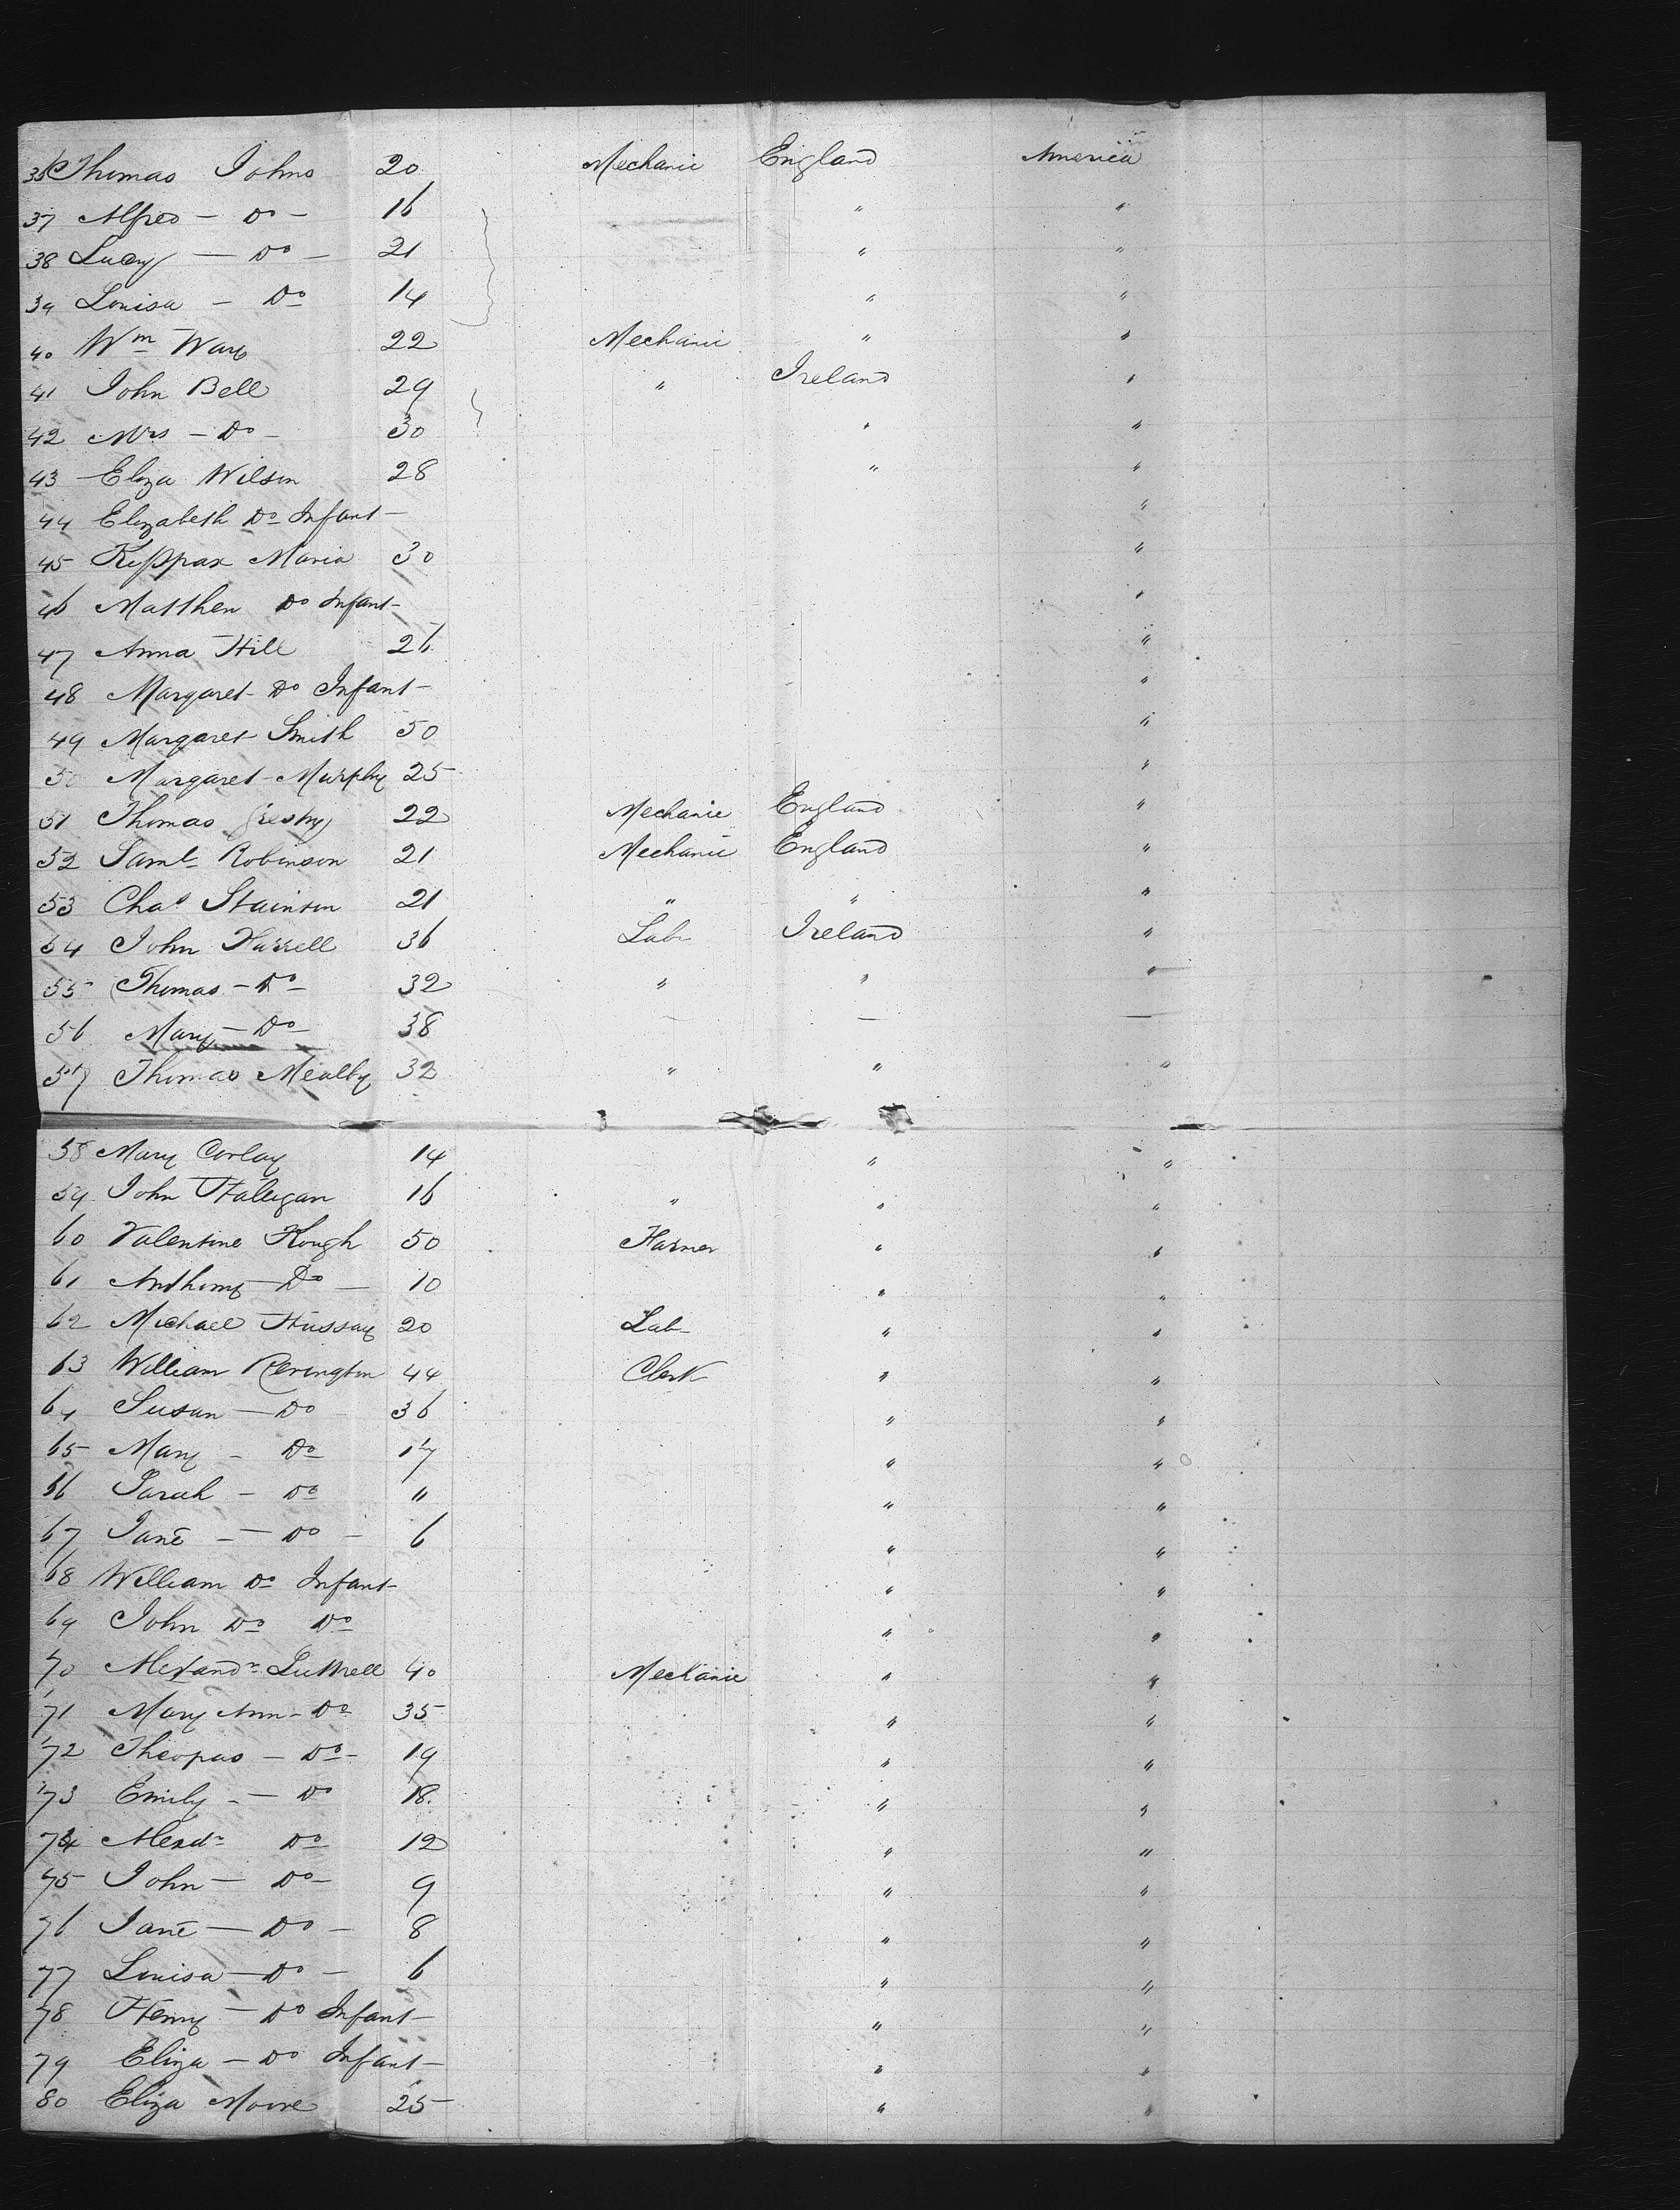 36 Thomas Johns 20 Mechanic England America
37 Alfred - Do - 16 " "
38 Lucy - Do - 21 " "
39 Louisa - Do 14 " "
40 Wm 22 Mechanic " "
41 John Bell 29 " Ireland "
42 Mrs - Do - 30 " "
43 Eliza Wilson 28 " "
44 Elizabeth Do Infant "
45 Maria 30 "
46 Matthew Do Infant "
47 Anna Hill 26 "
48 Margaret Do Infant "
49 Margaret Smith 50 "
50 Margaret Murphy 25 "
51 Thomas 22 Mechanic England "
52 Saml Robinson 21 Mechanic England "
53 Chas Stainton 21 " " "
54 John Farrell 36 Lab Ireland "
55 Thomas - Do - 32 " " "
56 Mary - Do - 38 - - -
57 Thomas Mealby 32 " " "
58 Mary Corlay 14 " "
59 John Halligan 16 " " "
60 Valentine Keugh 50 Farmer " "
61 Anthony - Do - 10 " "
62 Michael Hussay 20 Lab " "
63 William Revington 44 Clerk " "
64 Susan - Do 36 " "
65 Mary - Do 17 " "
66 Sarah - Do 11 " "
67 Jane - Do - 6 " "
68 William Do Infant " "
69 John Do Do " "
70 Alexandr Luttrell 40 Mechanic " "
71 Mary Ann - Do 35 " "
72 - Do - 19 " "
73 Emily - Do 18 " "
74 Alexdr Do 12 " "
75 John - Do - 9 " "
76 Jane - Do - 8 " "
77 Louisa - Do - 6 " "
78 Henry - Do Infant " "
79 Eliza - Do Infant " "
80 Eliza Moore 25 " "